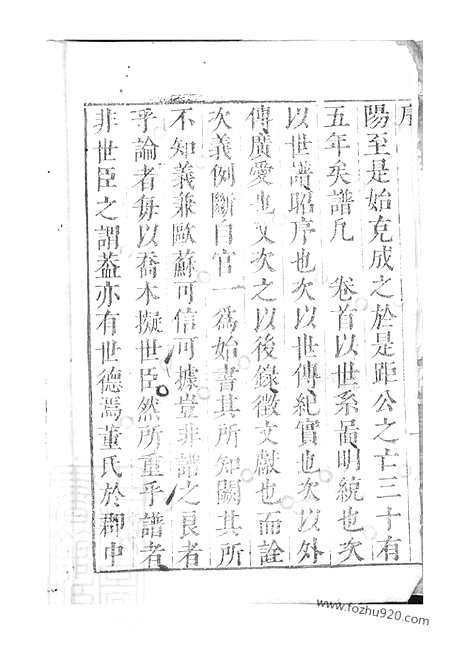 序
陽至是始克成之於是距公之亡三十有
五年矣譜凡　卷首以世系圖明統也次
以世譜昭序也次以世傳紀實也次以外
傳廣愛也又次之以後錄徵文獻也而詮
次義例斷自官一爲始書其所知闕其所
不知義兼歐蘇可信可據豈非譜之良者
乎論者每以喬木擬世臣然所重乎譜者
非世臣之謂葢亦有世德焉董氏於郡中
www.fozhu920.com